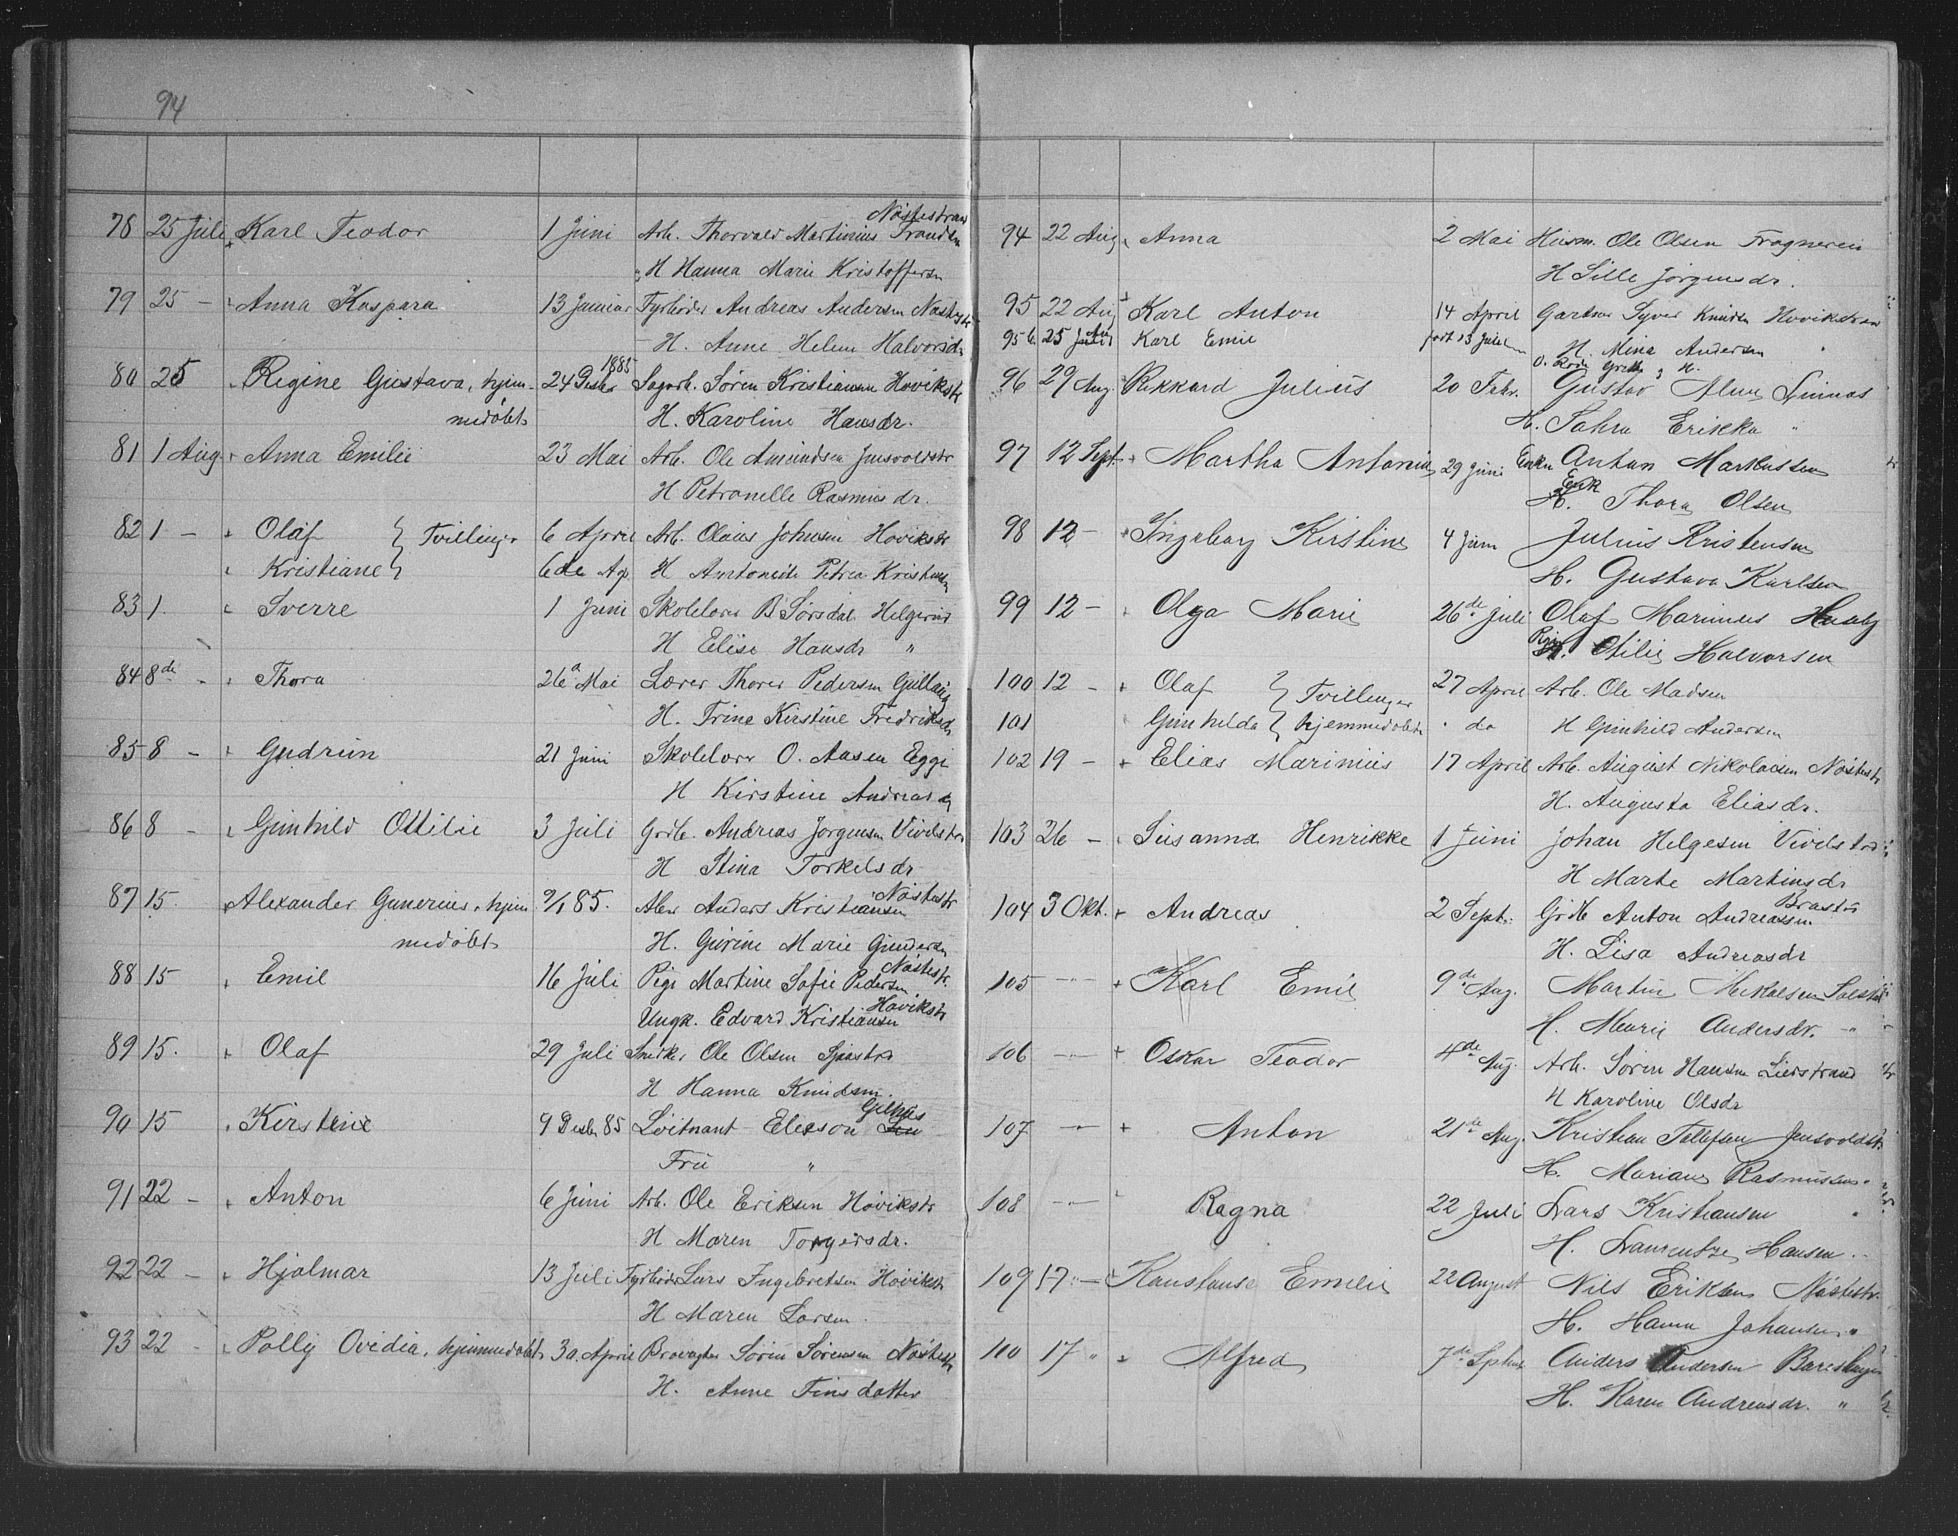 94
78 25 Juli Karl Teodor 1 Juni Arb. Thorvald Martinius Frandsen Nøstestrand
H Hanna Marie Kristoffersen
79 25 — Anna Kaspara 13 Januar Fyrbøder Andreas Andersen Nøstestr
H. Anne Helene Halvorsdr
80 25 Regine Gustava, hjem- 24 Desbr 1885 Sagarb. Søren Kristiansen Hovikstr
medøbt H. Karoline Hansdr.
81 1 Aug Anna Emilie 23 Mai Arb. Ole Amundsen Junsvoldstr
H Petronelle Rasmusdr.
82 1 — Olaf } Tvillinger 6 April Arb. Olaus Johnsen Hovikstr
Kristiane } 6de Ap H Antonette Petrea Kristensen
83 1. Sverre 1 Juni Skolelærer B Sørsdal Helgerud
H Elise Hansdr "
84 8de - Thora 26 Mai Lærer Thorer Pedersen Gullaug
H. Trine Kirstine Fredriksdr
85 8 — Gudrun 21 Juni Skolelærer O. Aasen Egge
H Kirstine Andreasdr
86 8 — Gunhild Ottilie 3 Juli Grdbr. Andreas Jørgensen Vivelstad
H Stina Torkelsdr
87 15. Alexander Gunerius, hjem 9/1 85. Arb. Anders Kristiansen Nøstestr
medøbt H. Gurine Marie Gundersen
88 15 Emil 16 Juli Pige Martine Sofie Pedersen Nøstestr.
Ungk. Edvard Kristiansen Hovikstr
89 15. Olaf 29 Juli Snekker Ole Olsen
H Hanna Knudsen.
90 15 Kirstine 9 Desbr 85 Løitnant Eleson Gilhus
Fru "
91 22 — Anton 6 Juni Arb. Ole Eriksen Høvikstr
H Maren Torgersdr.
92 22 — Hjalmar 13 Juli Fyrbøder Lars Ingebretsen Hovikstr
H Maren Larsen.
93 22 — Polly Ovidia, hjemmedøbt 30 April Brovagter Søren Sørensen Nøstestr
H. Anne Finsdatter
94 22 Aug Anna 2 Mai Husm. Ole Olsen Frogner
H Sille Jørgensdr.
95 22 Aug Karl Anton 14 April Gartner Syver Knudsen Hovikstran
95 b. 25 Juli Karl Emil født 13 Juli H. Mina Andersen "
96 29 Aug. Rikkard Julius 20 Febr. Gustav Linnæs
H. Sahra Erikka "
97 12 Sept. Martha Antonie 29 Juni Enkm Anton Markussen
Enk H. Thora Olsen
98 12 — Ingeborg Kirstine 4 Juni Julius Kristensen
H. Gustava Karlsen
99 12 — Olga Marie 26de Juli Olaf Marinius Husaby
H. Otilie Halvorsen
100 12 — Olaf } Tvillinger 27 April Arb. Ole Madsen
101 Gunhilda } hjemmedøbt " do H Gunhild Andersen
102 19 — Elias Marinius 17 April Arb. August Nikolaisen Nøstestr
H. Augusta Eliasdr.
103 26 — Susanna Henrikke 1 Juni Johan Helgesen Vivelstad
H Marte Martinsdr
104 3 Okt. Andreas 2 Sept. Grdbr Anton Andreassen
H. Lisa Andreasdr
105 — Karl Emil 9de Aug. Martin Mikalsen
H. Marie Andersdr. "
106 — Oskar Teodor 4de Aug. Arb. Søren Hansen Lierstrand
H Karoline Olsdr
107 — Anton 21de Aug. Kristian Tollefsen Junsvoldstr
H. Mariane Rasmussen.
108 — Ragna 22 Juli Lars Kristiansen "
H. Laurentze Hansen
109 17 — Konstanse Emelie 22 August Nils Eriksen Nøstestr.
H. Hanna Johansen "
110 17 " Alfred 7de Septbr Anders Andersen
H. Karen Andreasdr. "